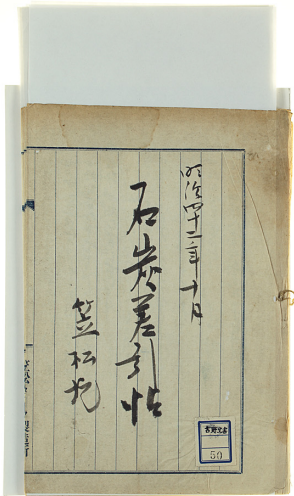 明治四十二年十月
石炭差引帖
笠松坑
50